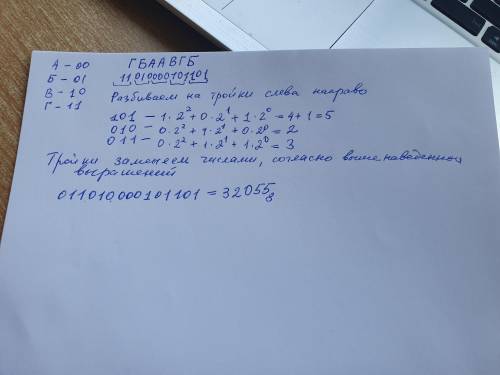 А - 00 ГБААВГБ
Б - 01 11010000101101
В - 10 Разбиваем на тройки слева направо
Г - 11
101 - 1·2² + 0·2¹ + 1·2⁰ = 4+1=5
010 - 0·2² + 1·2¹ + 0·2⁰ = 2
011 - 0·2² + 1·2¹ + 1·2⁰ = 3
Тройки заменяем числами, согласно вышенаведенной
выражений
011010000101101 = 32055₈